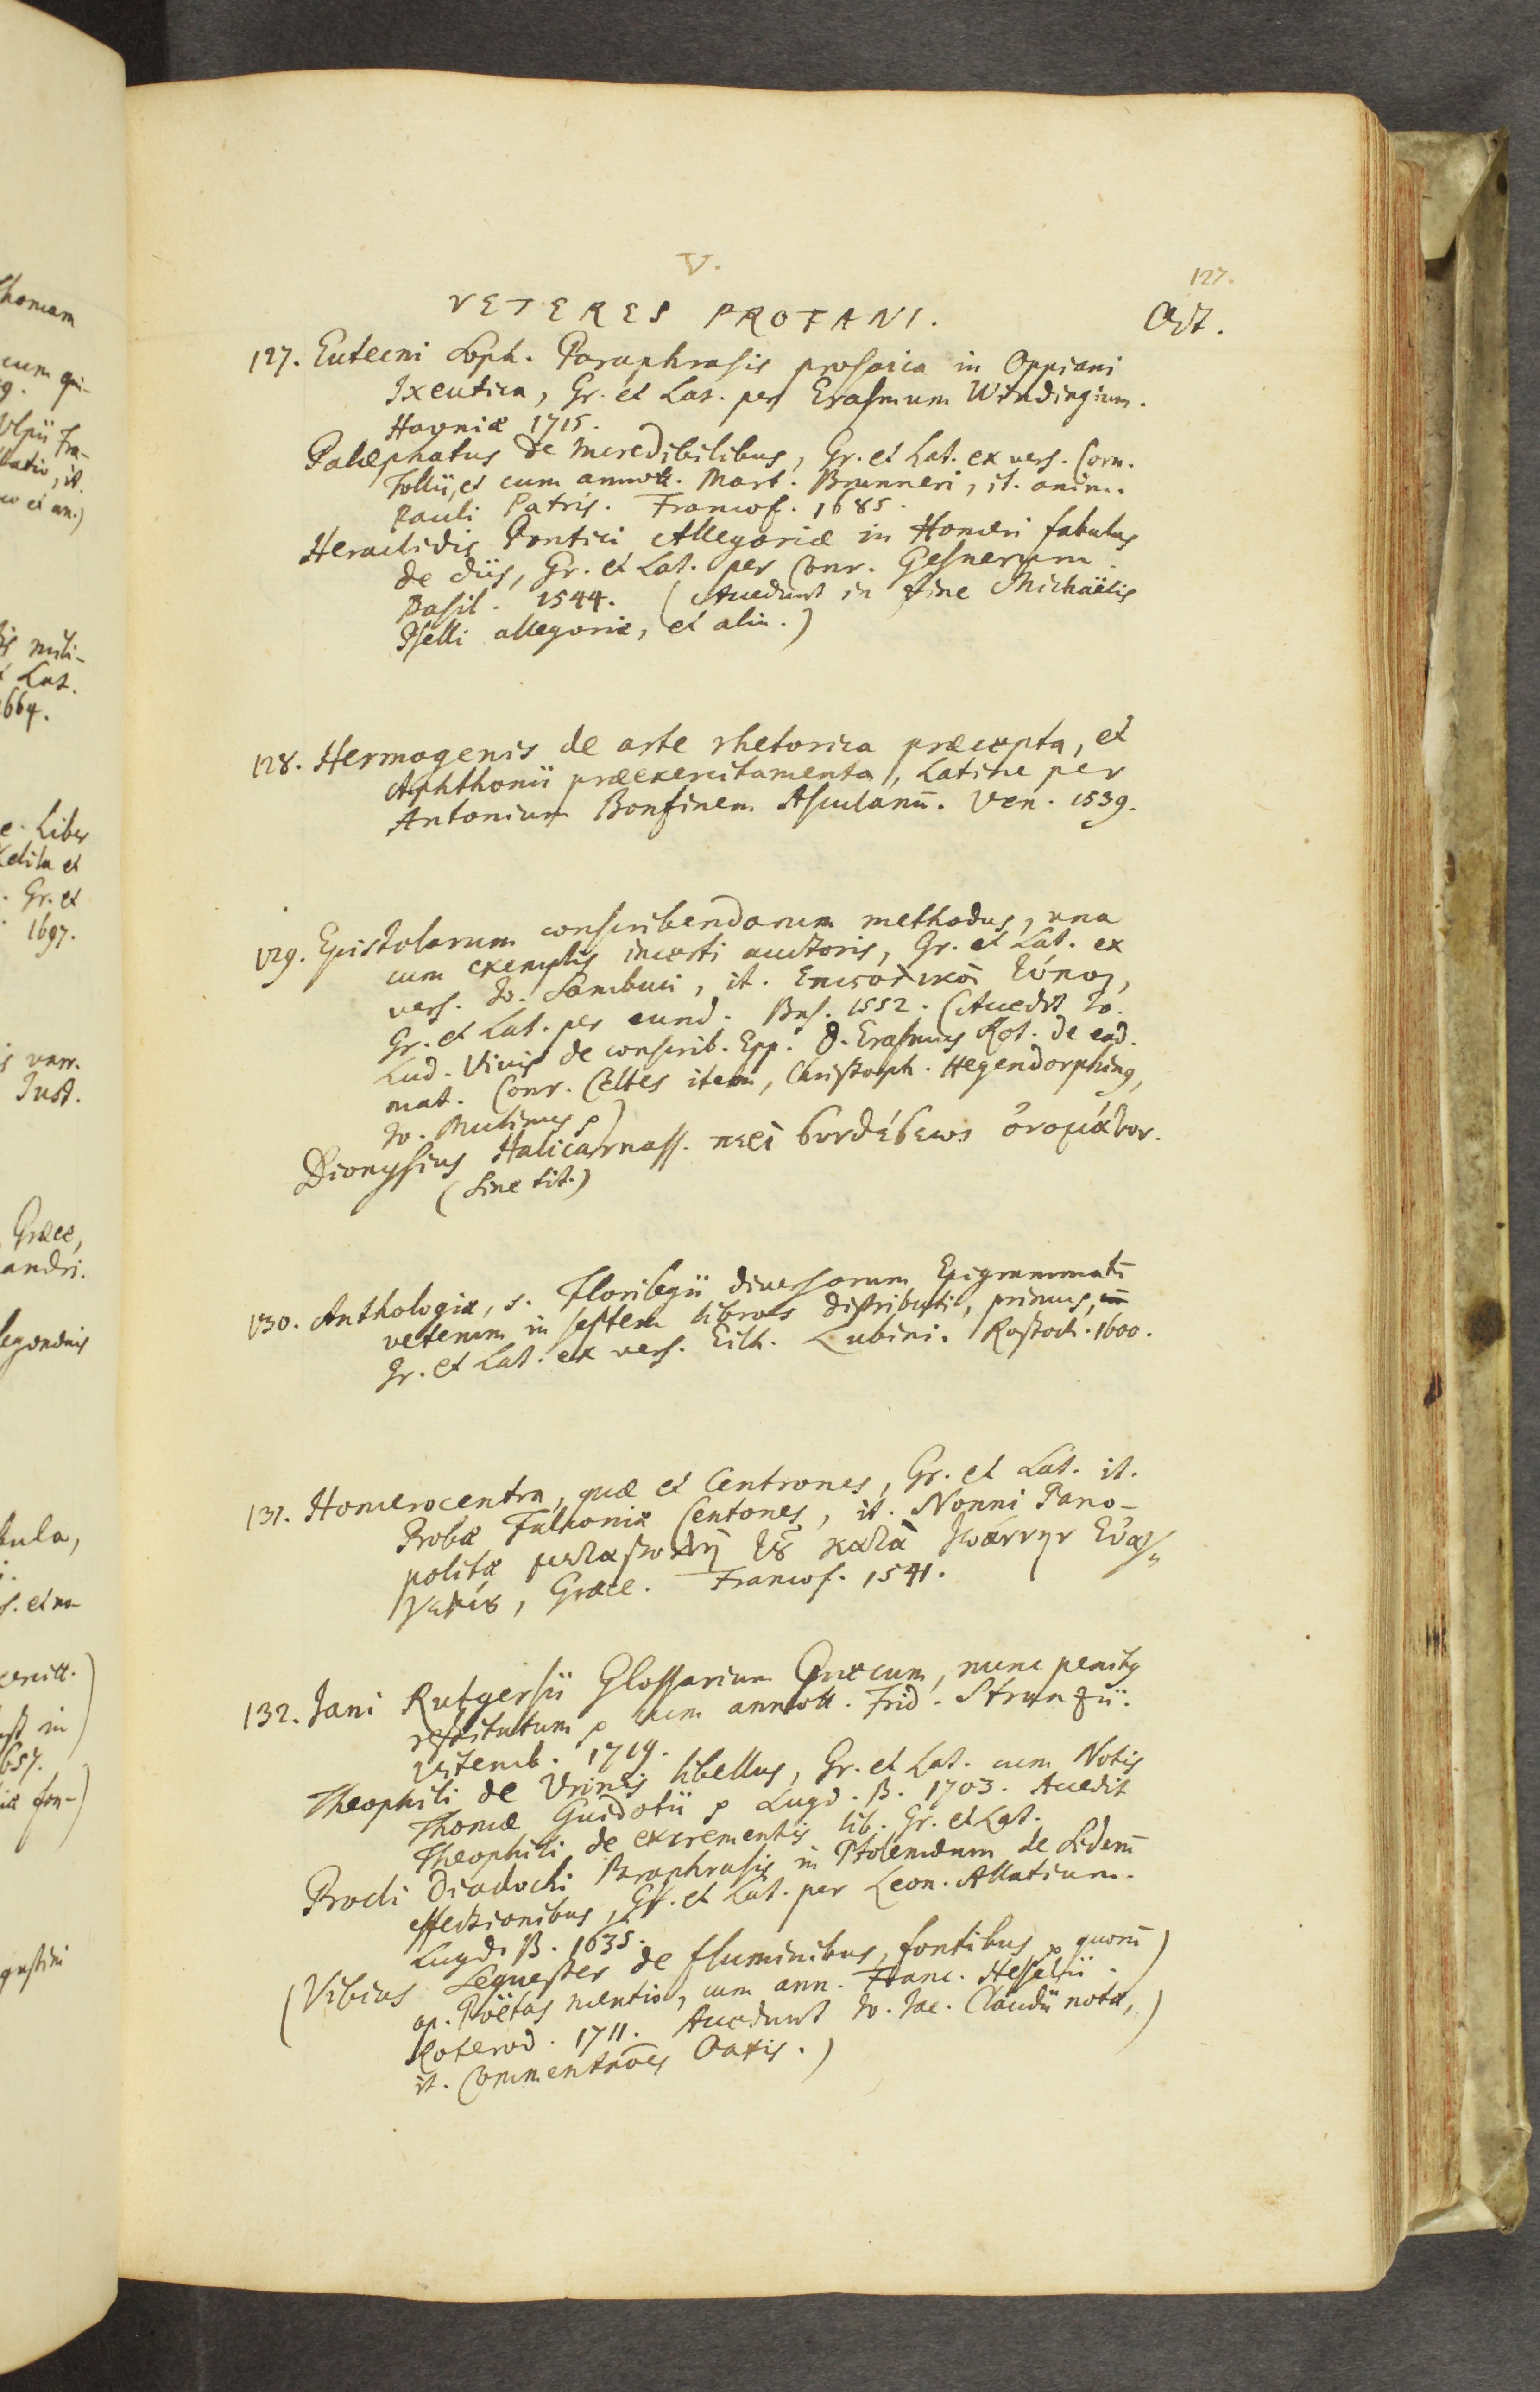 V.
127.
VETERES PROFANI.
Oct.
127. Eutecni Soph. Paraphrasis prosaica in Oppiani
Ixeutica, Gr. et Lat. per Erasmum Windingium.
Havniæ 1715.
Palæphatus de incredibilibus, Gr. et Lat. ex vers. Corn.
Tollii, et cum annott. Mart. Brunneri, it. anim.
Pauli Patris. Francof. 1685.
Heraclidis Pontici Allegoriæ in Homeri fabulas
de diis, Gr. et Lat. per Conr. Gesnerum.
Basil. 1544. (Accedunt in fine Michaëlis
Pselli allegoriæ, et alia.)
128. Hermogenis de arte rhetorica præcepta, et
Aphthonii præexercitamenta, Latine per
Antonium Bonfinem Asculanū. Ven. 1539.
129. Epistolarum conscribendarum methodus, una
cum exemplis incerti auctoris, Gr. et Lat. ex
vers. Jo. Sambuci, it.
Gr. et Lat. per eund. Bas. 1552. (Accedit Jo.
Lud. Vivis de conscrib. Epp. D. Erasmus Rot. de ead.
mat. Conr. Celtes item, Christoph. Hegendorphinus,
Jo.
Dionysius Halicarnass. περὶ συνθέσεως ὀνομάτων.
(Sine tit.)
130. Anthologiæ, s. Florilegii diversorum Epigrammatū
veterum in septem libros distributi, primus,
Gr. et Lat. ex vers. Eilh. Lubini. Rostoch. 1600.
131. Homerocentra, quæ et Centrones, Gr. et Lat. it.
Probæ Falconiæ Centones, it. Nonni Pano-
politæ μεταβολὴ τȣ κατὰ Ἰωάννην Εὐαγ-
γελίȣ, Græce. Francof. 1541.
132. Jani Rutgersii Glossarium Græcum, nunc penitus
restitutum cum annott. Frid. Strunzii.
Vitemb. 1719.
Theophili de Urinis libellus, Gr. et Lat. cum Notis
Thomæ Guidotii Lugd. B. 1703. Accedit
Theophili de excrementis lib. Gr. et Lat.
Procli Diadochi Paraphrasis in Ptolemæum de Siderū
effectionibus, Gr. et Lat. per Leon. Allatium.
Lugd. B. 1635.
(Vibius Sequester de fluminibus, fontibus quorū
ap. Poëtas mentio, cum ann. Franc. Hesselii.
Roterod. 1711. Accedunt Jo. Jac. notæ,
it. Oaxis.)